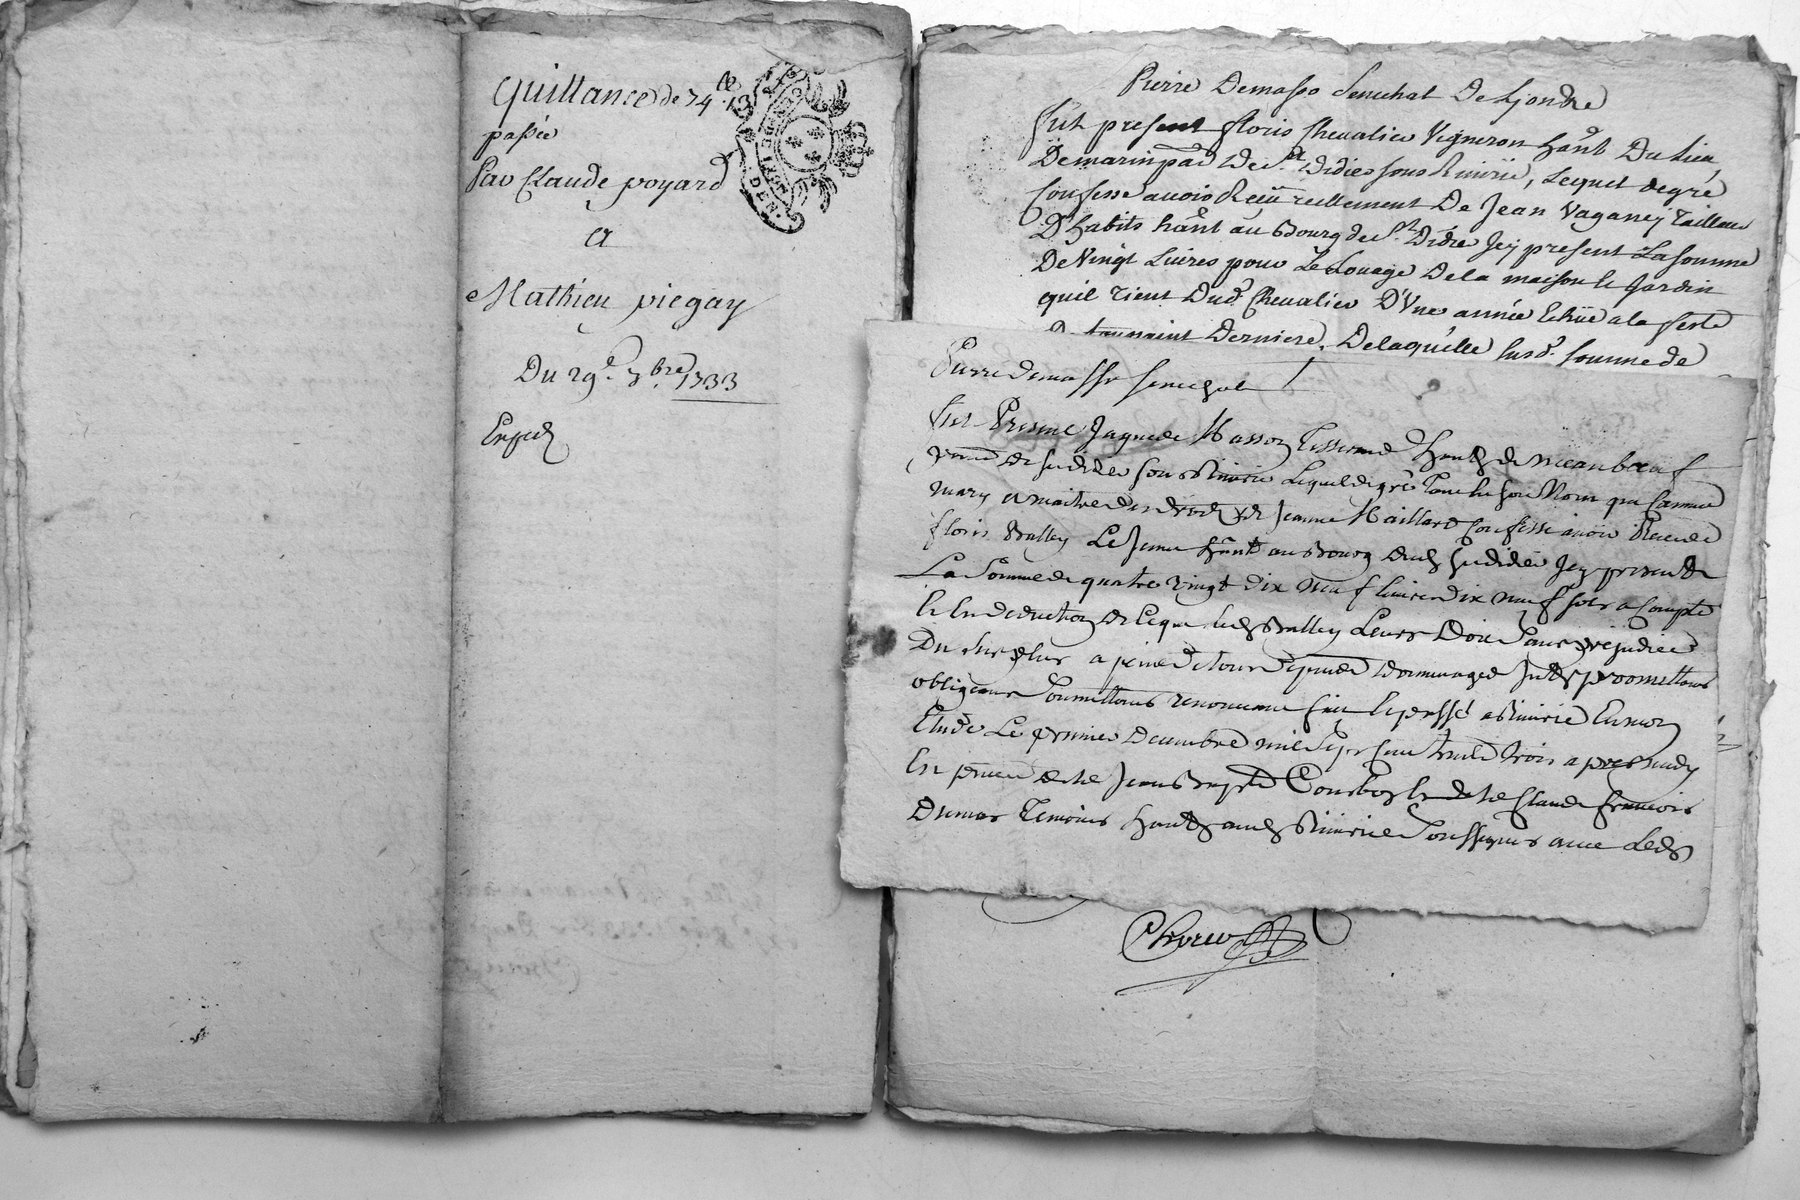 Quittance de 74ᵗᵗ 13
passée
Par Claude poyard
A
Mathieu piegay
Du 29ᵉ 7bre 1733
Exped
GENER
DEN.
Pierre Demasso senechal De Lyon &c
fut present floris Chevalier Vigneron hant Du Lieu
De marin psse De st. didier sous Riuirie, Lequel de gré
Confesse auoir Receu reellement De Jean Vaganey Tailleur
D'habits hant au Bourg de St. Didie Jcy present La somme
De Vingt Liures pour Le Louage De la maison & Jardin
quil Tient Dud. Chevalier D'Vne année Echüe a la feste
toussaint Derniere, De laquelle susd. somme de
Pierre demasso senechal
fut Present Jaques Masson Tisserand hant de
de st didier sous Riuirie Lequel de gré son Nom que comme
mary et maitre des droits de Jeanne Maillard Confesse auoir Receu de
floris Balley Le Jeune hant au Bourg dud st didier Jcy present
La Somme de quatre vingt dix neuf liures dix neuf sols a Compte
& En deduction de ce que led Balley Leurs Doit sans prejudice
Du surplus a peine de tous depends dommages promettans
obligeans soumettans renonceans fait & passé a Riuirie En mon
Etude Le premier Decembre mil sept cent trente trois apres midy
En presence de sr Jean Baptte & de sr Claude francois
Dumas Temoins hants aud Riuirie soussignes auec Led